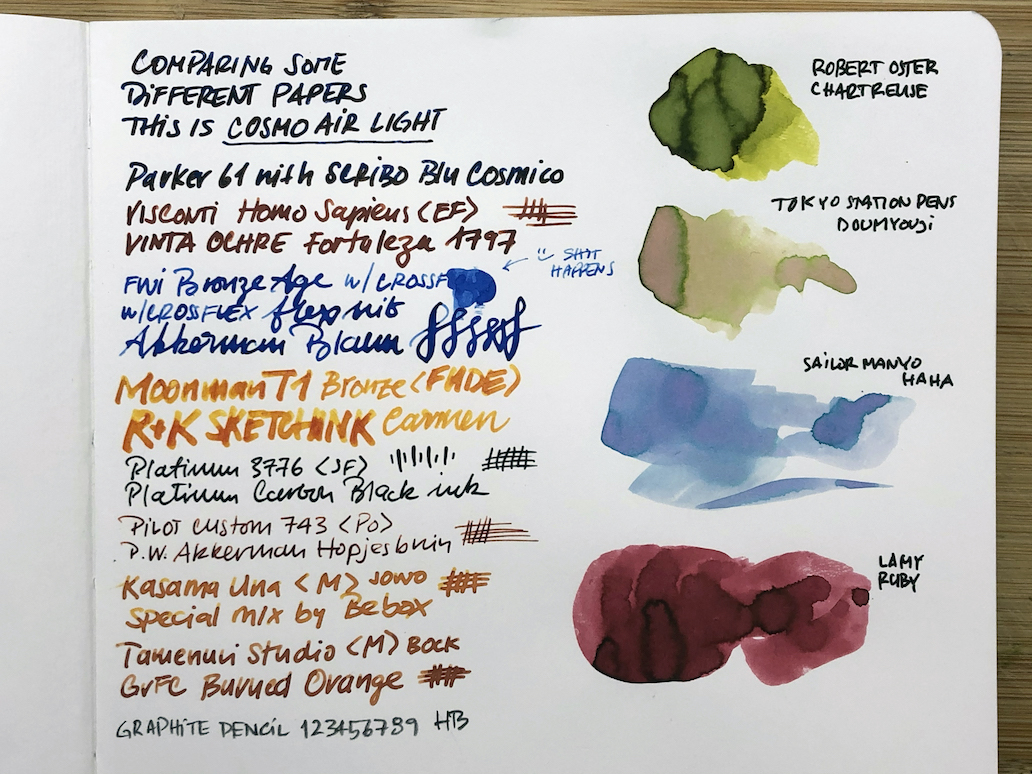 COMPARING SOME
DIFFERENT PAPERS
THIS IS COSMO AIR LIGHT
Parker 61 with SCRIBO Blu Cosmico
VISCONTI Homo Sapiens <EF>
VINTA OCHRE Fortaleza 1797
FWi Bronze Age w/CROSSF
SHIT
HAPPENS
w/CROSSFLEX flex nib
Akkerman Blauw
Moonman T1 Bronze <FUDE>
R+K SKETCHINK Carmen
Platinum 3776 <SF>
Platinum Carbon Black ink
PILOT CUSTOM 743 <PO>
P.W. Akkerman Hopjesbruin
Kasama Una <M> JOWO
Special mix by Bebax
Tamenuri Studio <M> BOCK
GvFC Burned Orange
GRAPHITE PENCIL 123456789 HB
ROBERT OSTER
CHARTREUSE
TOKYO STATION PENS
DOUMYOUJI
SAILOR MANYO
HAHA
LAMY
RUBY